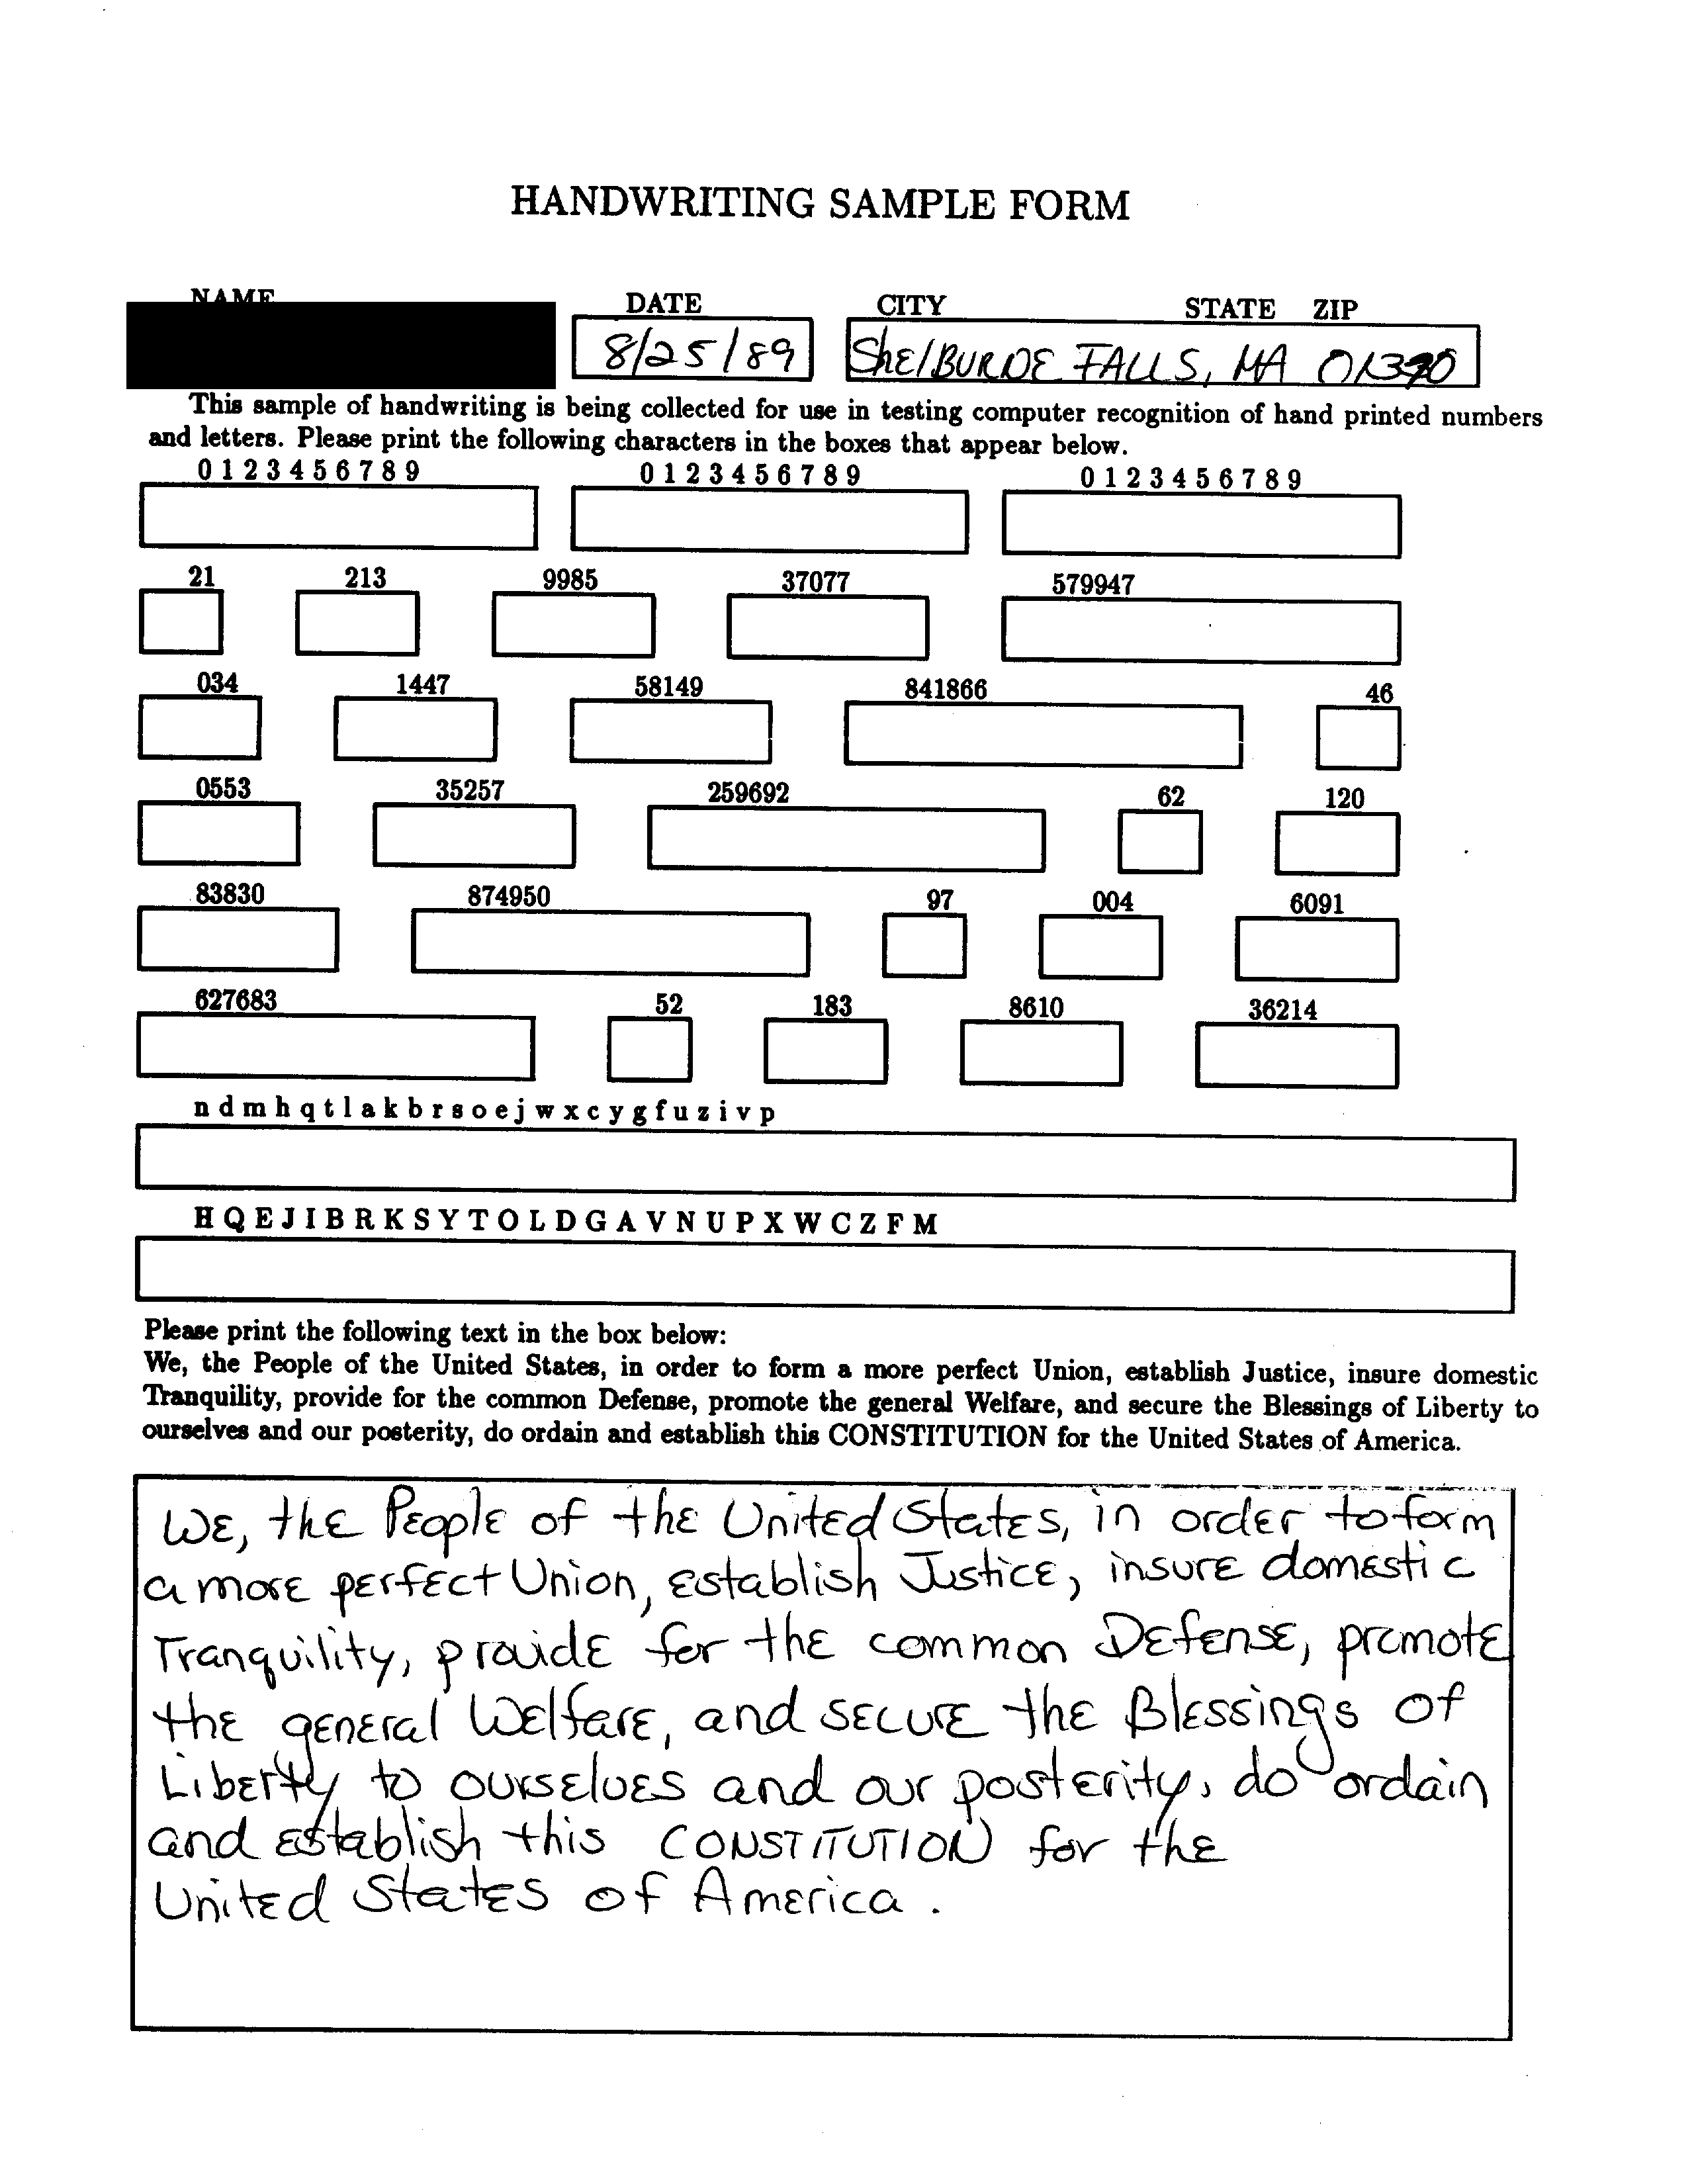 HANDWRITING SAMPLE FORM
NAME DATE CITY STATE ZIP
8/25/89 ShElBURDE FALLS, MA 01370
This sample of handwriting is being collected for use in testing computer recognition of hand printed numbers
and letters. Please print the following characters in the boxes that appear below.
0 1 2 3 4 5 6 7 8 9 0 1 2 3 4 5 6 7 8 9 0 1 2 3 4 5 6 7 8 9
21 213 9985 37077 579947
034 1447 58149 841866 46
0553 35257 259692 62 120
83830 874950 97 004 6091
627683 52 183 8610 36214
n d m h q t l a k b r s o e j w x c y g f u z i v p
H Q E J I B R K S Y T O L D G A V N U P X W C Z F M
Please print the following text in the box below:
We, the People of the United States, in order to form a more perfect Union, establish Justice, insure domestic
Tranquility, provide for the common Defense, promote the general Welfare, and secure the Blessings of Liberty to
ourselves and our posterity, do ordain and establish this CONSTITUTION for the United States of America.
WE, the People of the United States, in order to form
a more perfect Union, establish Justice, insure domestic
Tranquility, provide for the common Defense, promote
the general Welfare, and secure the Blessings of
Liberty to ourselves and our posterity, do ordain
and establish this CONSTITUTION for the
United States of America.